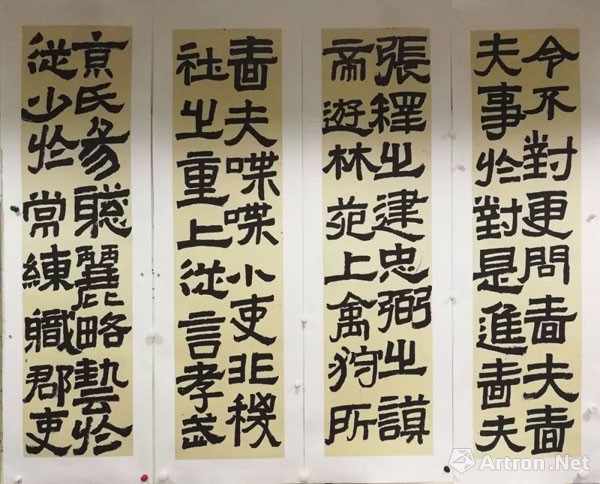 令不對更問嗇夫嗇
夫事於對是進嗇夫
張釋之建忠弼之謨
帝遊林苑上禽狩所
嗇夫喋喋小吏非稷
社之重上從言孝武
京氏易聰麗略藝於
從少於常練職郡吏
Artron.Net